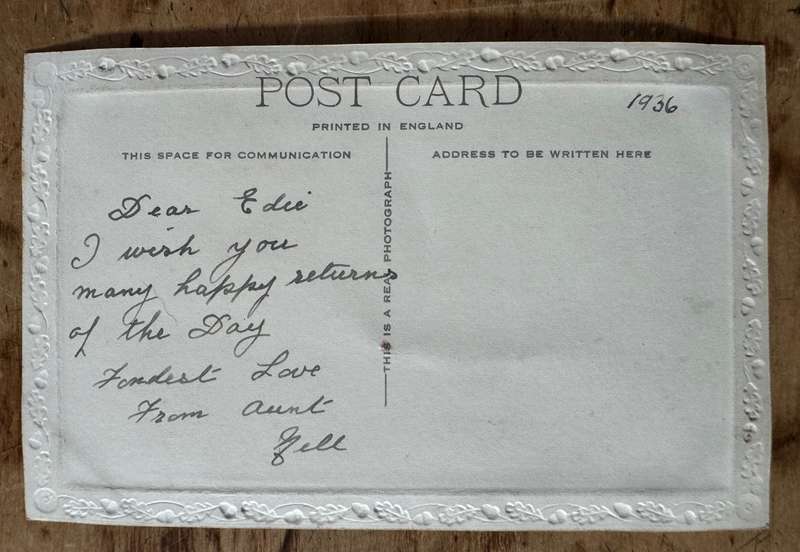 POST CARD
1936
PRINTED IN ENGLAND
THIS SPACE FOR COMMUNICATION
ADDRESS TO BE WRITTEN HERE
THIS IS A REAL PHOTOGRAPH
Dear Edie
I wish you
many happy returns
of the Day
Fondest Love
From Aunt
Nell